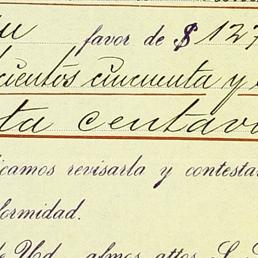 favor de $ 127
cientos cincuenta y
ta centav
camos revisarla y contesta
ormidad.
de Ud. afmos. attos. S. S.